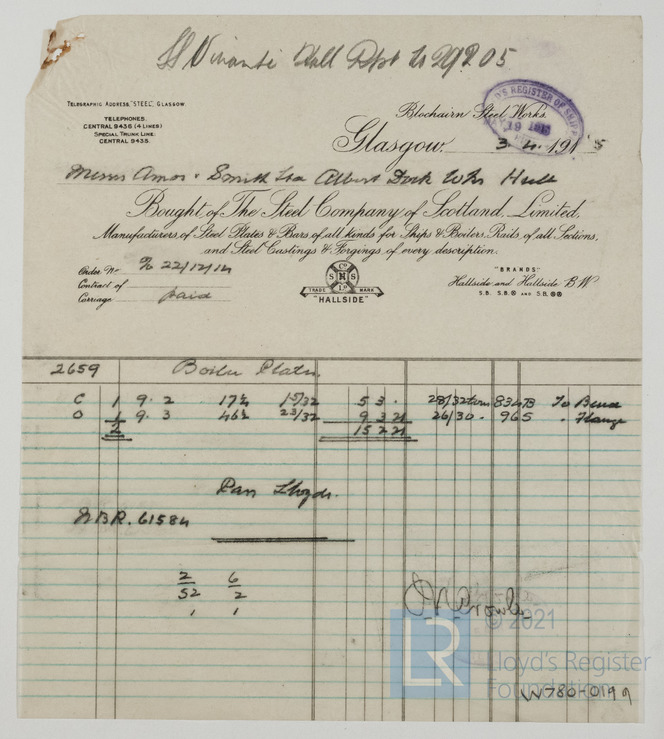 Hull Dpt
TELEGRAPHIC ADDRESS, "STEEL", GLASGOW
TELEPHONES.
CENTRAL 9436 (4 LINES)
SPECIAL TRUNK LINE:
CENTRAL 9435.
Blochairn Steel Works.
REGISTER OF SHIPP
19
Glasgow. 3.4.1915
Messrs Amos & Smith Ltd Albert Dock Wks Hull
Bought of The Steel Company of Scotland, Limited,
Manufacturers, of Steel Plates & Bars, of all kinds for Ships & Boilers, Rails, of all Sections,
and Steel Castings & Forgings, of every description.
Order No 22/12/14
Contract of
Carriage paid
Co
S H S
Ld
TRADE MARK
"HALLSIDE"
"BRANDS"
Hallside and Hallside B.W
S.B. S.B.⊗ AND S.B.⊗⊗
2659 Boiler Plates.
C 1 9. 2 17½ 15/32 5 3 . 28/32 tons 834B To Bend
O 1 9. 3 46½ 23/32 9 3 21 26/30 . 965 . Flange
2 15 2 21
Pass Lloyds.
61584
2 6
52 2
1 1
LR
© 2021
Lloyd's Register
Foundation
W780-0199